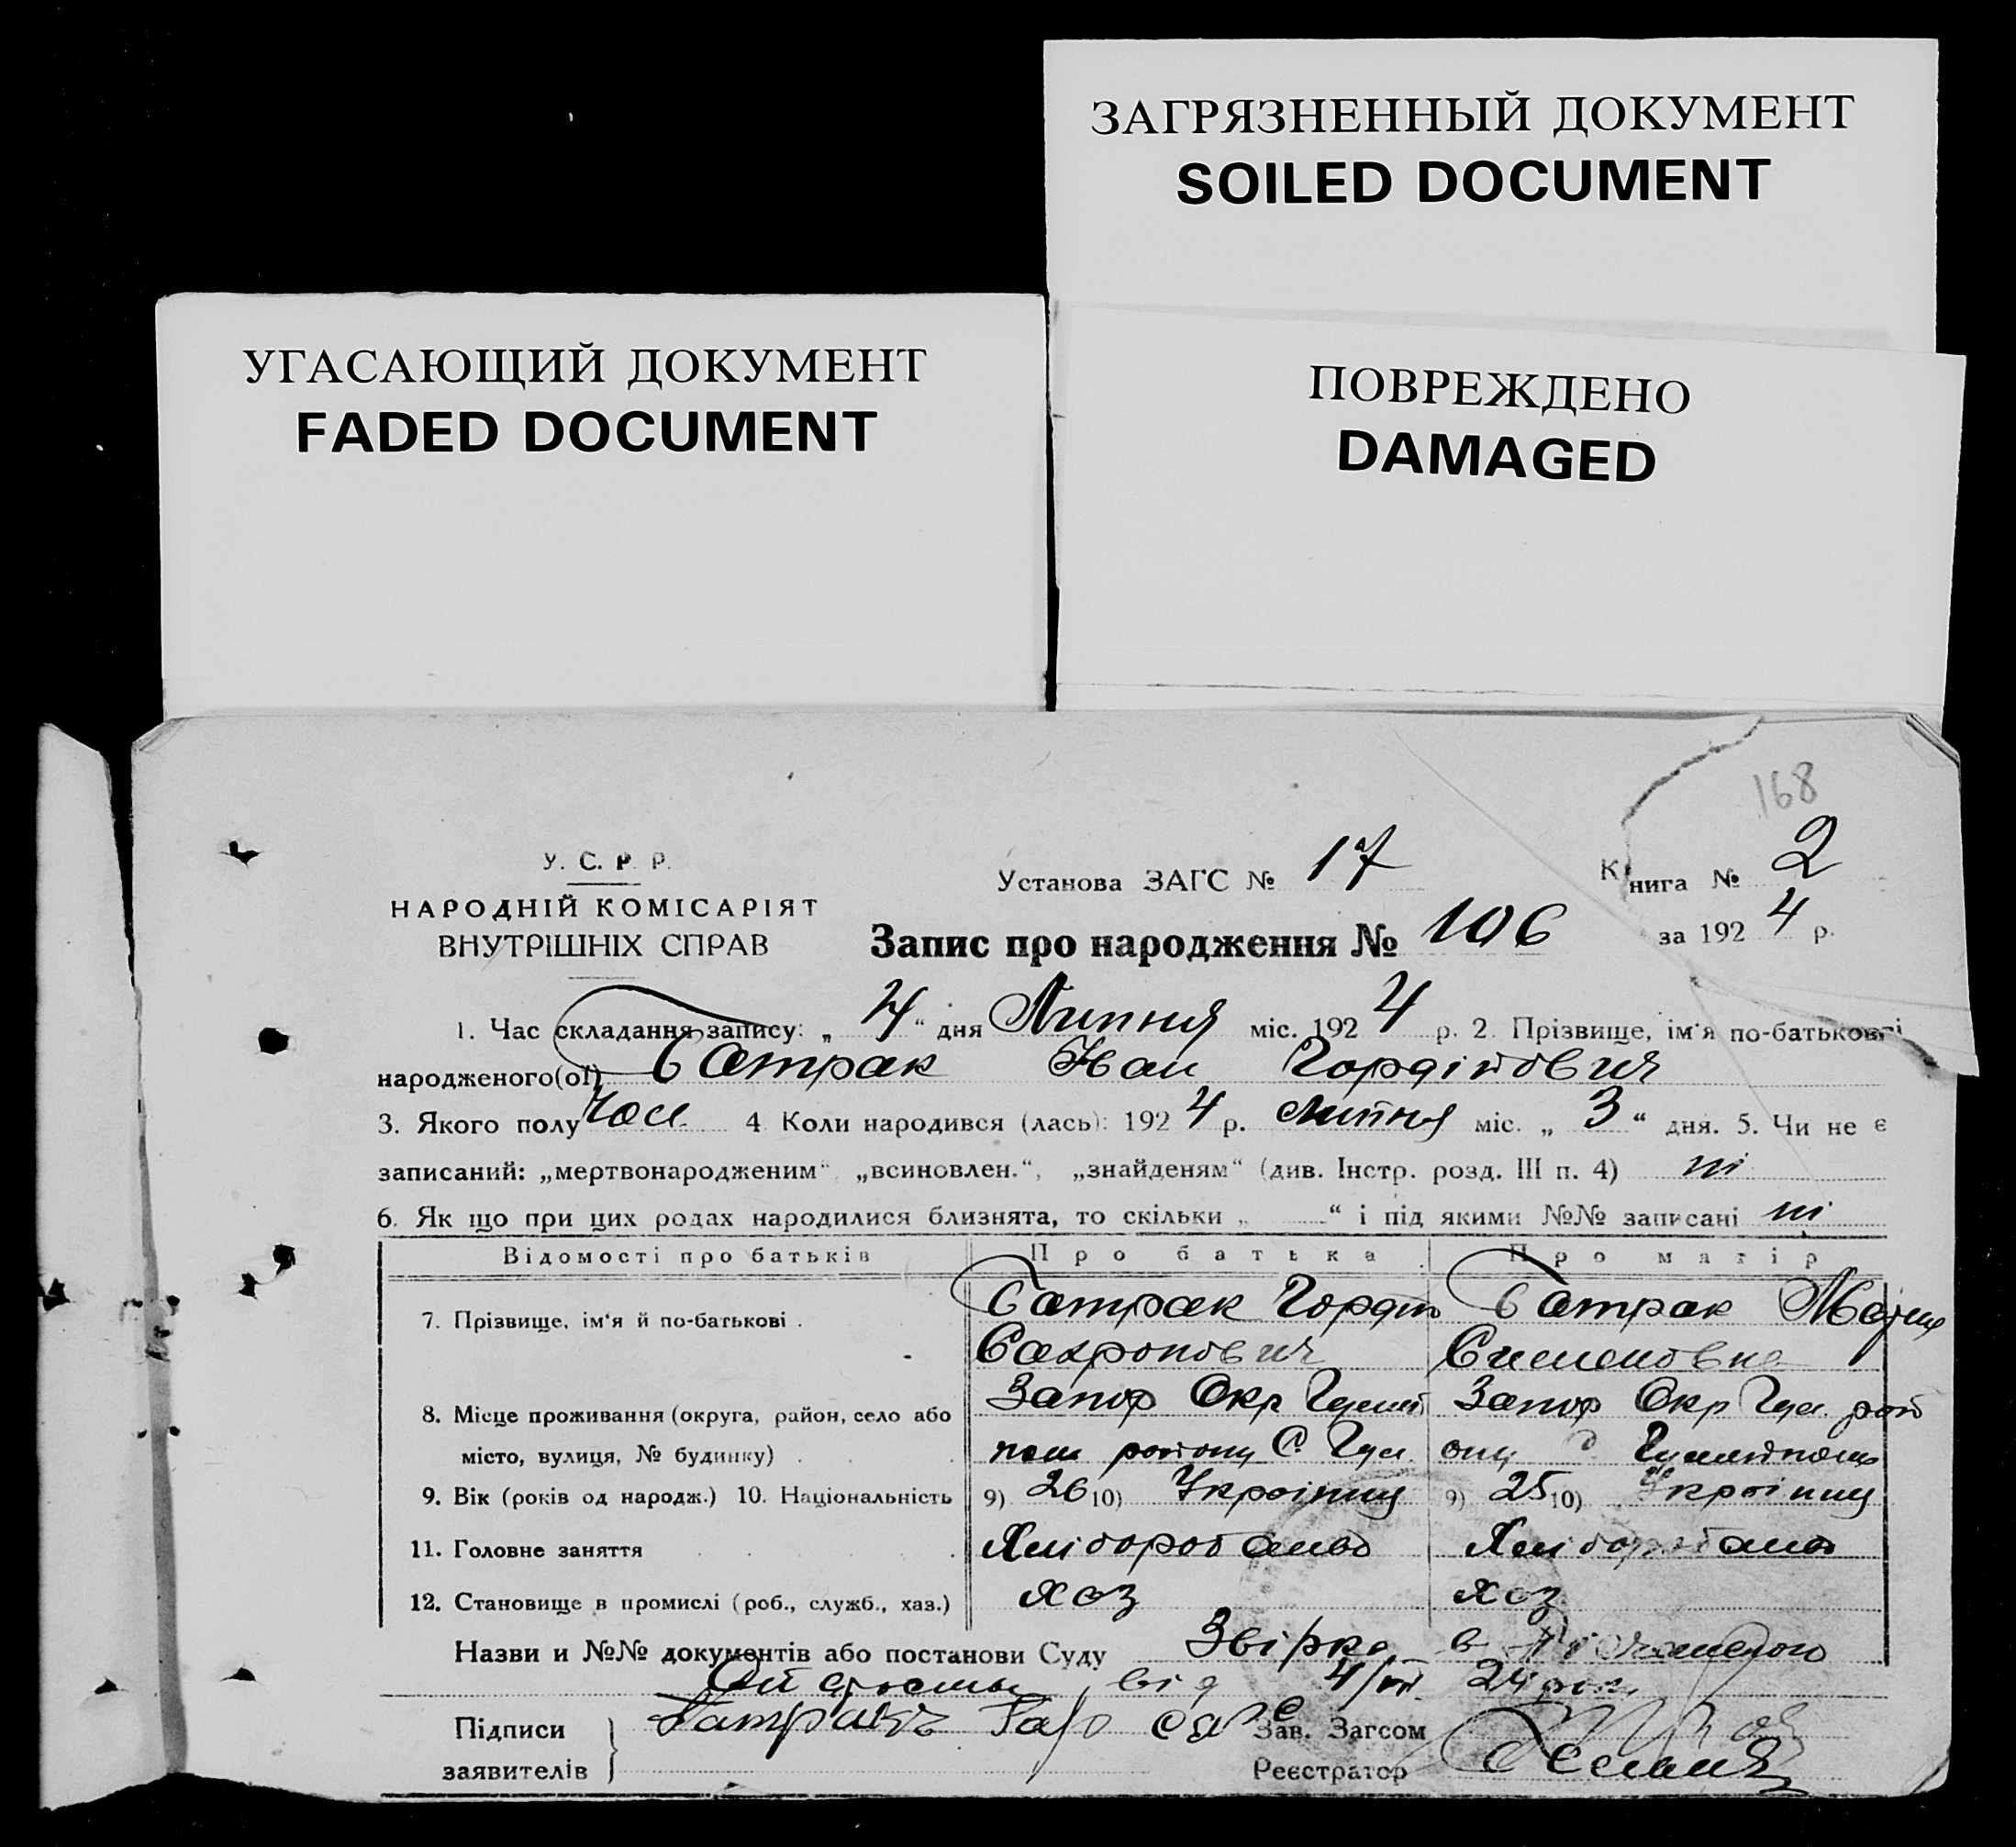 ЗАГРЯЗНЕННЫЙ ДОКУМЕНТ
SOILED DOCUMENT
УГАСАЮЩИЙ ДОКУМЕНТ
FADED DOCUMENT
ПОВРЕЖДЕНО
DAMAGED
168
У. С. Р. Р.
НАРОДНІЙ КОМІСАРІЯТ
ВНУТРІШНІХ СПРАВ
Установа ЗАГС № 17
Книга № 2
Запис про народження № 106
за 1924 р.
1. Час складання запису: „4“ дня Липня міс. 1924 р. 2. Прізвище, ім'я по-батькові
народженого(ої) Батрак Іван Гордійович
3. Якого полу Чол. 4 Коли народився (лась): 1924 р. Липня міс. „3“ дня. 5. Чи не є
записаний: „мертвонародженим“ „всиновлен.“, „знайденям“ (див. Інстр. розд. III п. 4) ні
6. Як що при цих родах народилися близнята, то скільки „ “ і під якими №№ записані ні
Відомості про батьків Про батька Про матір
7. Прізвище, ім'я й по-батькові . Батрак Гордій Батрак Марія
Сахронович Сименовна
8. Місце проживання (округа, район, село або Запор Окр Гуляй Запор Окр Гул. рай
місто, вулиця, № будинку) . пол району С. Гул. ону с Гуляйполь
9. Вік (років од народж.) 10. Національність 9) 26 10) Україниц 9) 25 10) Україниц
11. Головне заняття Хліборобство Хліборобство
12. Становище в промислі (роб., служб., хаз.) хоз хоз
Назви и №№ документів або постанови Суду Звірка в
від 4/VII 24 рок.
Підписи
заявителів
Зав. Загсом
Реєстратор